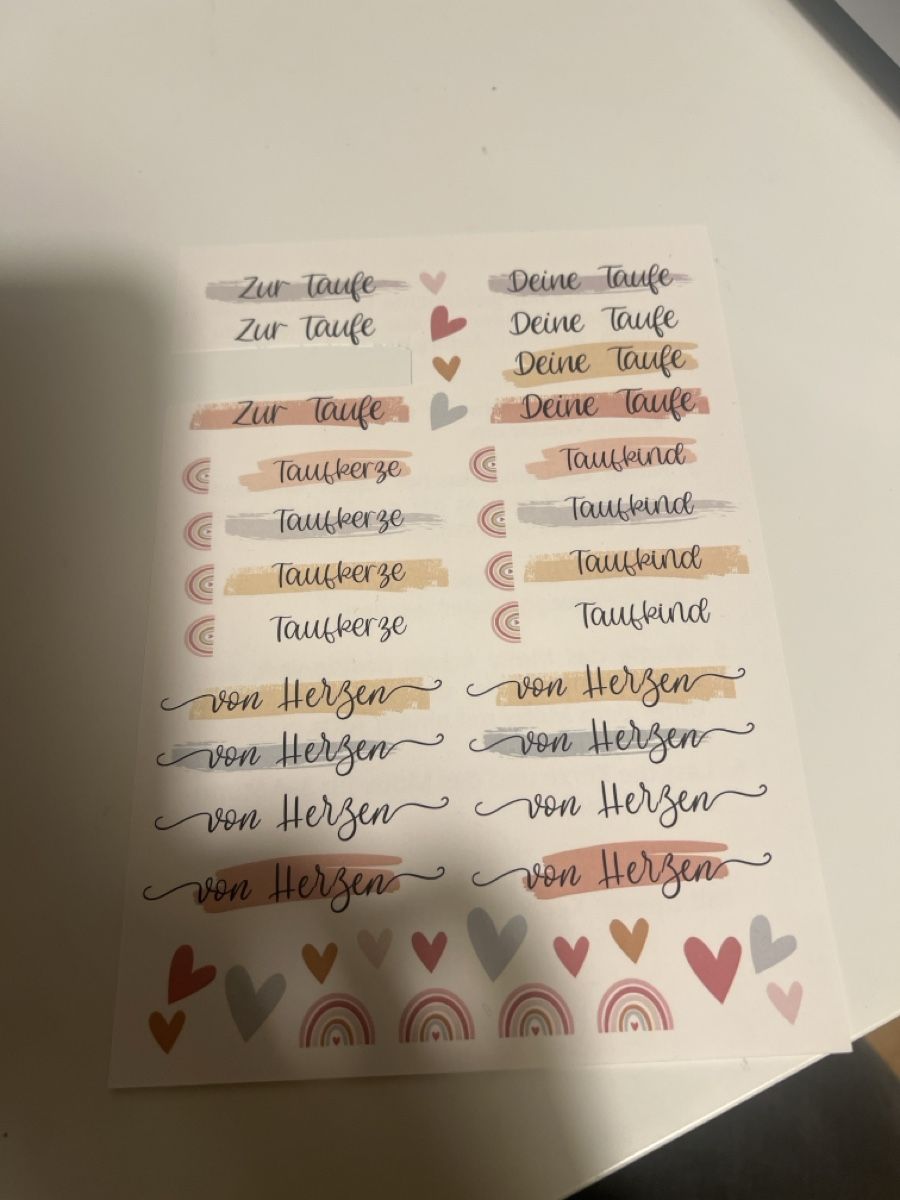 Zur Taufe Deine Taufe
Zur Taufe Deine Taufe
Deine Taufe
Zur Taufe Deine Taufe
Taufkerze Taufkind
Taufkerze Taufkind
Taufkerze Taufkind
Taufkerze Taufkind
von Herzen von Herzen
von Herzen von Herzen
von Herzen von Herzen
von Herzen von Herzen